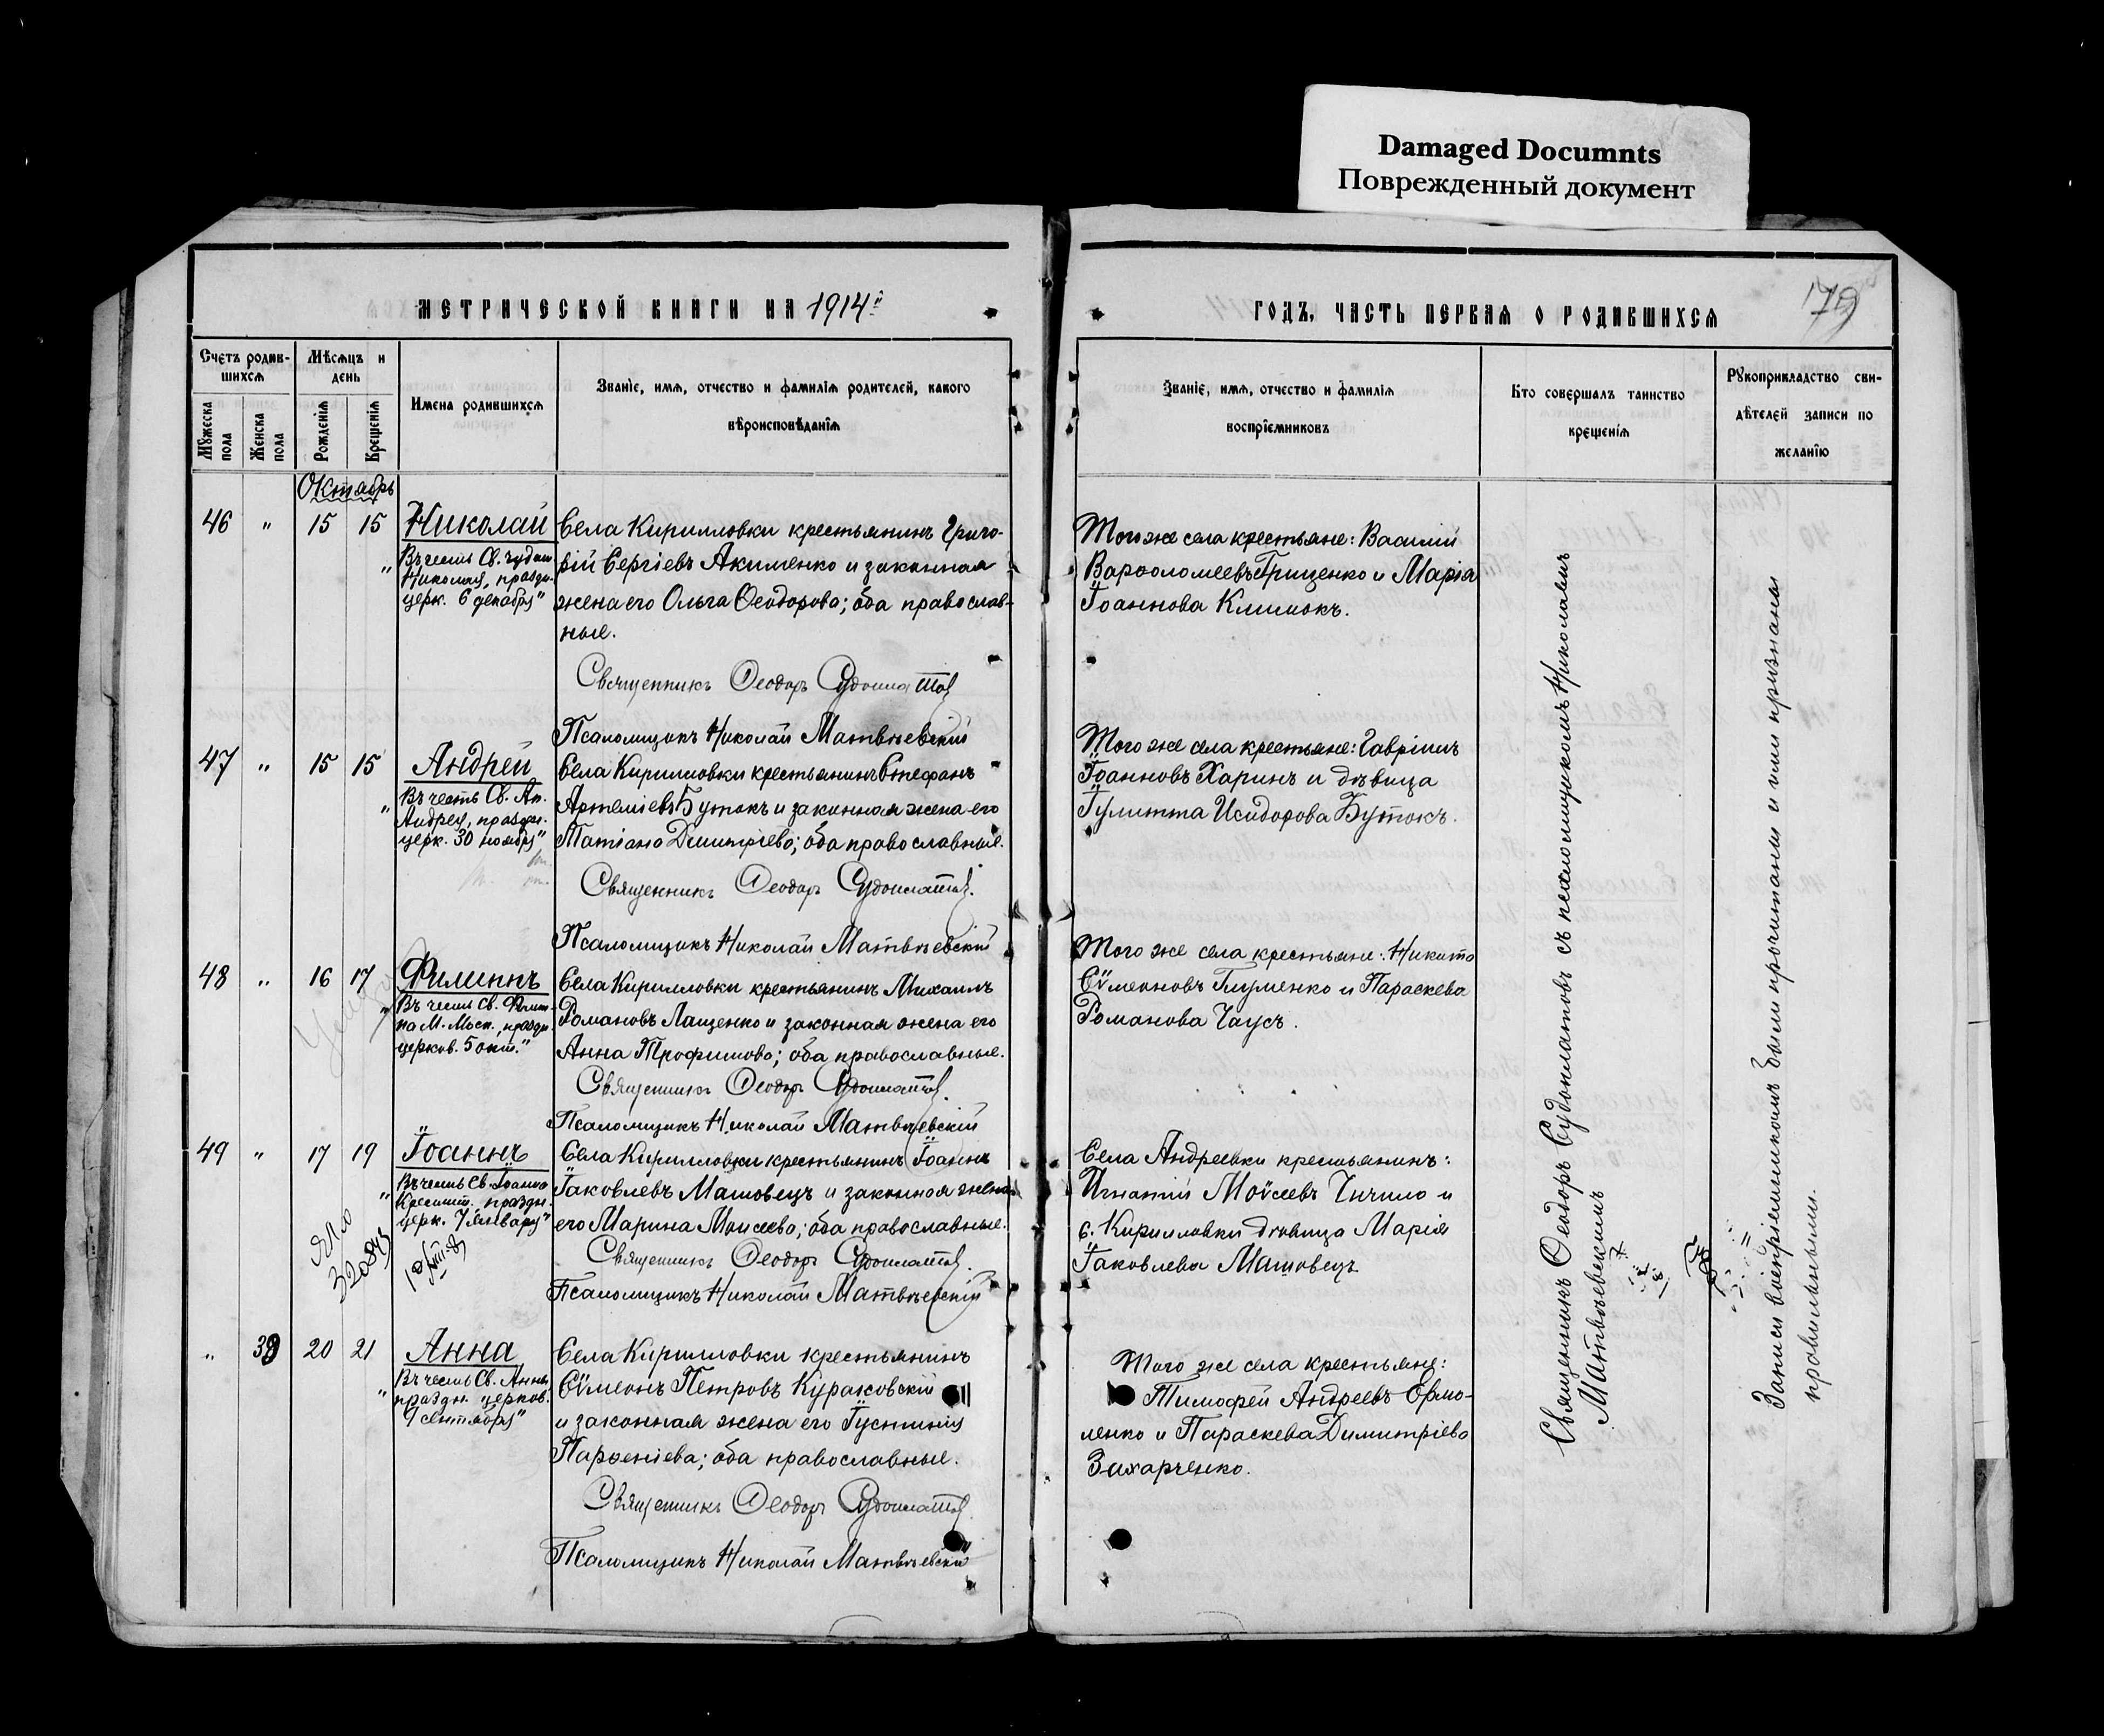 Damaged Documnts
Поврежденный документ
МЕТРИЧЕСКОЙ КНИГИ НА 1914й
Счетъ родив-
шихся
Мѣсяцъ и
день
Мужеска
пола
Женска
пола
Рожденія
Крещенія
Имена родившихся
Званіе, имя, отчество и фамилія родителей, какого
вѣроисповѣданія
Октябрь
46 " 15 15 Николай
Въ честь Св. чудот.
Николая, праздн.
церк. 6 декабря"
Села Кирилловки крестьянинъ Григо-
рій Сергіевъ Акименко и законная
жена его Ольга Ѳеодорова; оба православ-
ные.
Священникъ Ѳеодоръ Судоплатовъ
Псаломщикъ Николай Матвѣевскій
47 " 15 15 Андрей
Въ честь Св. Ап.
Андрея, праздн.
церк. 30 ноября"
Села Кирилловки крестьянинъ Стефанъ
Артеміевъ Бутокъ и законная жена его
Татіана Димитріева; оба православные.
Священникъ Ѳеодоръ Судоплатовъ.
Псаломщикъ Николай Матвѣевскій
48 " 16 17 Филиппъ
Въ честь Св. Филип-
па М. Моск., праздн.
церков. 5 окт."
Села Кирилловки крестьянинъ Михаилъ
Романовъ Лащенко и законная жена его
Анна Трофимова; оба православные.
Священникъ Ѳеодоръ Судоплатовъ.
Псаломщикъ Николай Матвѣевскій
49 " 17 19 Іоаннъ
Въ честь Св. Іоанна
Крестит., праздн.
церк. 7 января"
Села Кирилловки крестьянинъ Іоаннъ
Іаковлевъ Машовецъ и законная жена
его Марина Моисеева; оба православные.
Священникъ Ѳеодоръ Судоплатовъ.
Псаломщикъ Николай Матвѣевскій
" 39 20 21 Анна
Въ честь Св. Анны
праздн. церков.
9 сентября"
Села Кирилловки крестьянинъ
Сѵмеонъ Петровъ Кураковскій
и законная жена его Іустинія
Парѳеніева; оба православные.
Священникъ Ѳеодоръ Судоплатовъ.
Псаломщикъ Николай Матвѣевскій
ГОДЪ, ЧАСТЬ ПЕРВАЯ О РОДИВШИХСЯ
179
Званіе, имя, отчество и фамилія
воспріемниковъ
Кто совершалъ таинство
крещенія
Рукоприкладство сви-
дѣтелей записи по
желанію
Того же села крестьяне: Василій
Варѳоломеевъ Гриценко и Марія
Іоаннова Климокъ.
Того же села крестьяне: Гавріилъ
Іоанновъ Харинъ и дѣвица
Іулитта Исидорова Бутокъ.
Того же села крестьяне: Никита
Сѵмеоновъ Глуменко и Параскева
Романова Чаусъ.
Села Андреевки крестьянинъ:
Игнатій Моѵсеевъ Чичило и
с. Кирилловки дѣвица Марія
Іаковлева Машовецъ
Того же села крестьяне:
Тимофей Андреевъ Ермо-
ленко и Параскева Димитріева
Захарченко.
Священникъ Ѳеодоръ Судоплатовъ съ псаломщикомъ Николаемъ
Матвѣевскимъ
Записи воспріемникамъ были прочитаны и ими признаны
правильными.